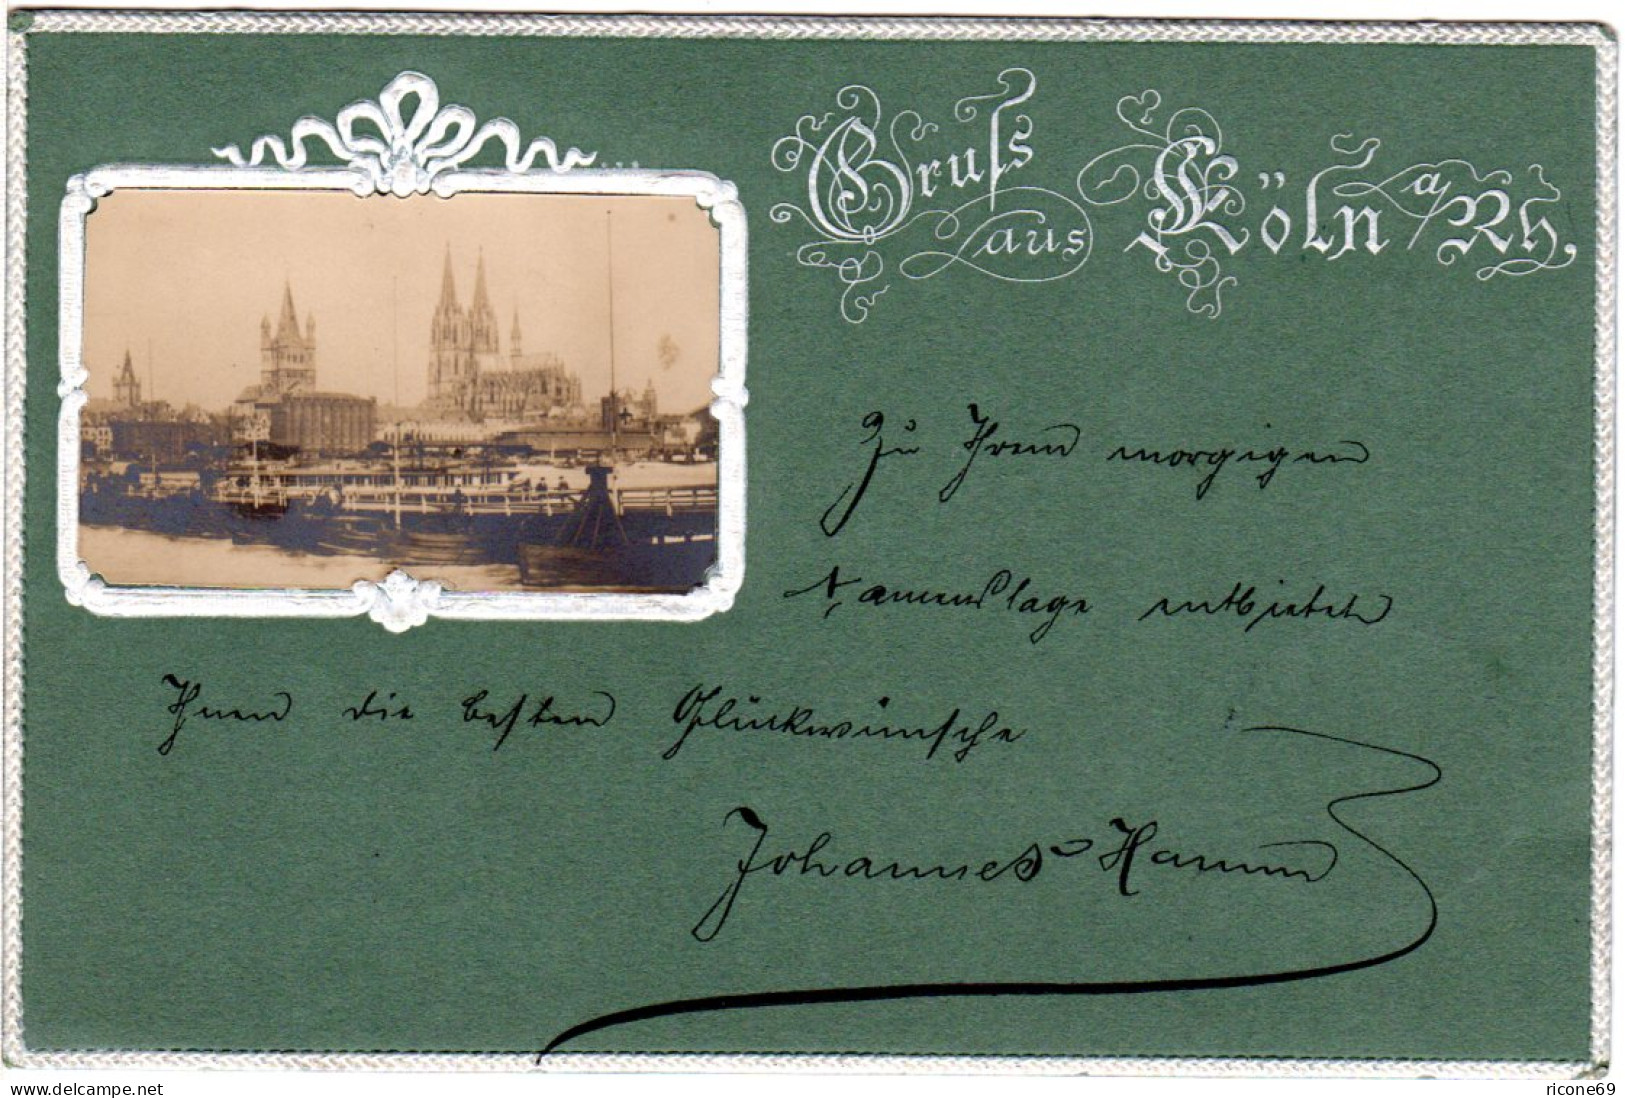 Gruss
aus Köln a/Rh.
Zu Ihrem morgigen
Namenstage entbietet
Ihnen die besten Glückwünsche
Johannes Hamm
www.delcampe.net
ricone69